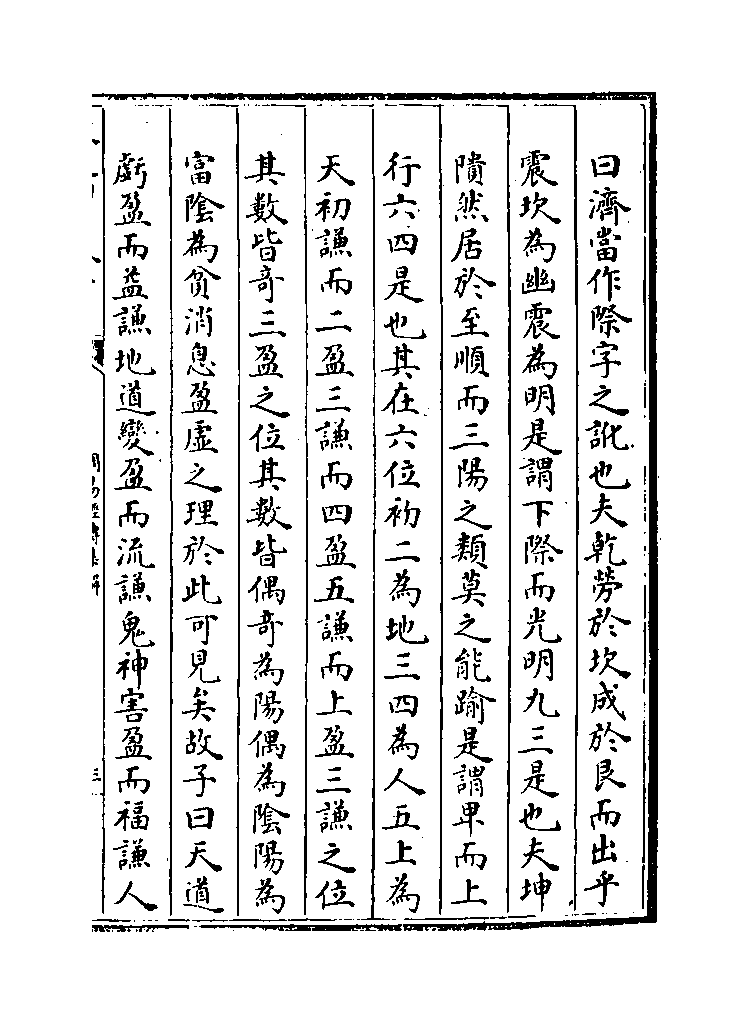 曰濟當作際字之訛也夫乾勞於坎成於艮而出乎
震坎為幽震為明是謂下際而光明九三是也夫坤
隤然居於至順而三陽之類莫之能踰是謂卑而上
行六四是也其在六位初二為地三四為人五上為
天初謙而二盈三謙而四盈五謙而上盈三謙之位
其數皆奇三盈之位其數皆偶奇為陽偶為陰陽為
富陰為貧消息盈虛之理於此可見矣故子曰天道
虧盈而益謙地道變盈而流謙鬼神害盈而福謙人
周易經傳集解
三